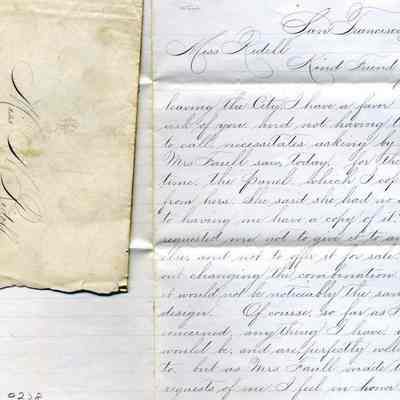 San Francisco
Miss Kidell
Kind Friend
leaving the City I have a favor
ask of you. And not having t
to call, necessitates asking by
Mrs Faull saw, today, for the
time, the panel, which I cop
from hers. She said she had no o
to having me have a copy of it
requested me not to give it to an
else, and not to offer it for sale
out changing the combination
it would not be noticeably the sam
design. Of course, so far as
concerned, anything I have
would be, and are, perfectly welc
to. but as Mrs Faull made t
requests of me I feel in honor
Miss
0232